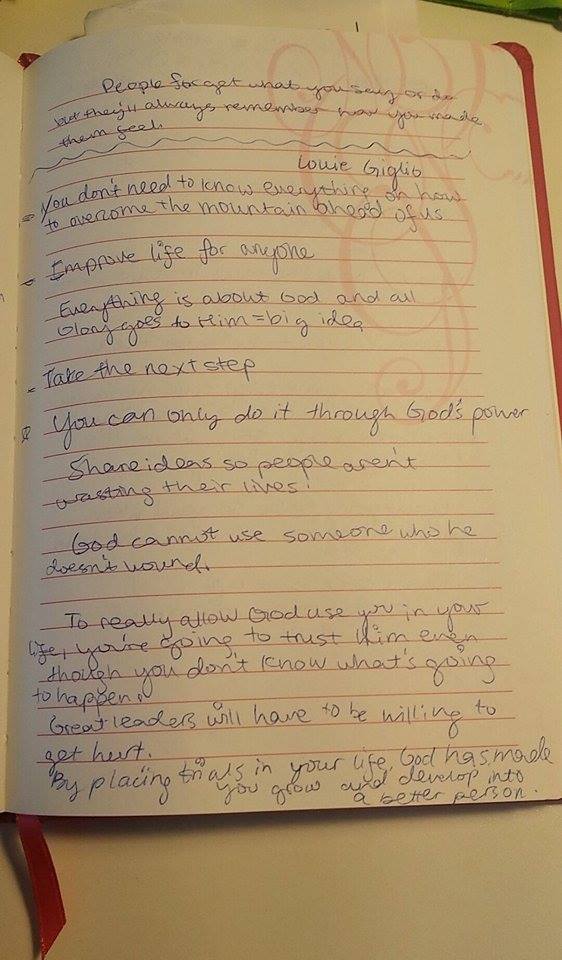 People forget what you say or do
but they'll always remember how you made
them feel.
Louie Giglio
You don't need to know everything on how
to overcome the mountain ahead of us
Improve life for anyone
Everything is about God and all
Glory goes to Him = big idea
Take the next step
You can only do it through God's power
Share ideas so people aren't
wasting their lives.
God cannot use someone who he
doesn't wound.
To really allow God use you in your
life, you're going to trust Him even
though you don't know what's going
to happen.
Great leaders will have to be willing to
get hurt.
By placing trials in your life, God has made
you grow and develop into
a better person.